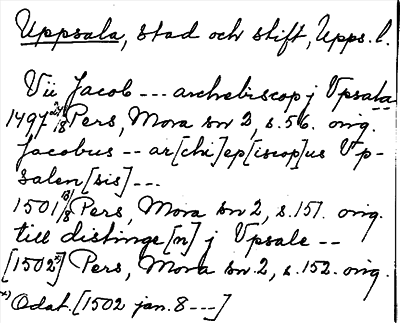 Uppsala, stad och stift, Upps. l.
Vii Jacob --- archebiscop j Vpsala
1497 27/8 Pers, Mora sn 2, s. 56. orig.
Jacobus -- ar[chi]ep[iscop]us Vp-
salen[sis] ---
1501 13/8 Pers, Mora sn 2, s. 151. orig.
till distinge[n] j Vpsale --
[1502 x)] Pers, Mora sn. 2, s. 152. orig.
x) Odat. [1502 jan. 8 ---]